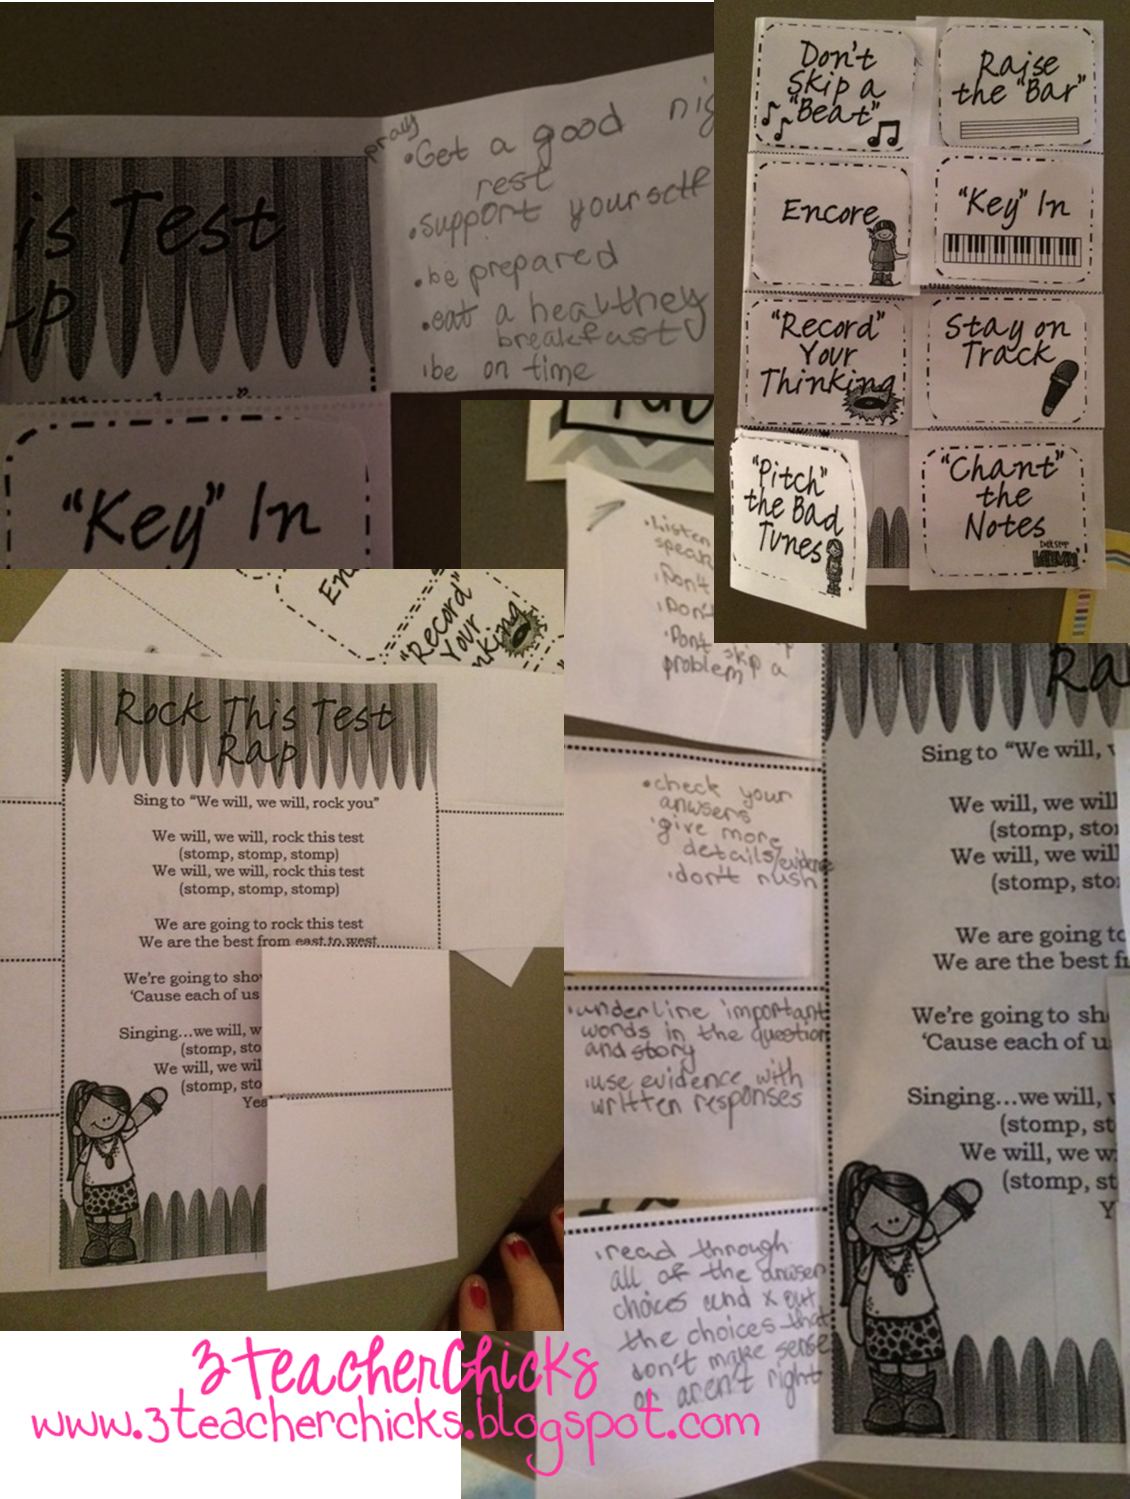 is Test
pray
•Get a good
rest
•support yourself
•be prepared
•eat a healthey
breakfast
•be on time
"Key" In
Don't
Skip a
"Beat"
Raise
the "Bar"
Encore
"Key" In
"Record"
Your
Thinking
Stay on
Track
"Pitch"
the Bad
Tunes
"Chant"
the
Notes
•Listen
•Don't
•Don't
•Don't skip a
problem
"Record"
Your
Rock This Test
Rap
Sing to "We will, we will, rock you"
We will, we will, rock this test
(stomp, stomp, stomp)
We will, we will, rock this test
(stomp, stomp, stomp)
We are going to rock this test
We are the best from east to west
We're going to
'Cause each of us
Singing...we will,
(stomp,
We will, we
(stomp,
•check your
anwsers
•give more
details/evidence
•don't rush
•underline important
words in the question
and story
•use evidence with
written responses
•read through
all of the anwser
choices and x out
the choices that
don't make sense
or aren't right
Sing to "We will,
We will, we will
(stomp,
We will, we will
(stomp,
We are going to
We are the best
We're going to
'Cause each of
Singing...we will,
(stomp,
We will, we
(stomp,
3TeacherChicks
www.3teacherchicks.blogspot.com